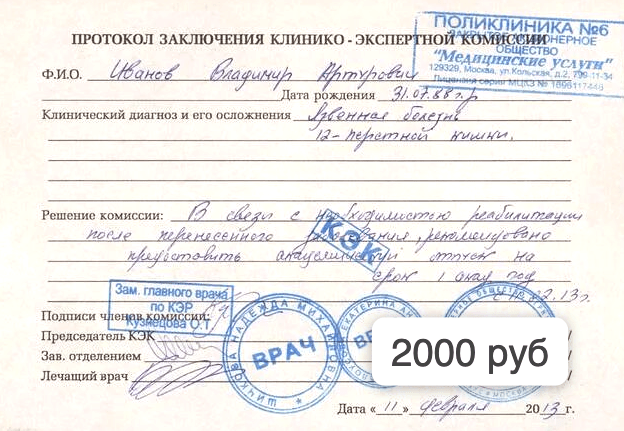 ПРОТОКОЛ ЗАКЛЮЧЕНИЯ КЛИНИКО - ЭКСПЕРТНОЙ КОМИССИИ
ПОЛИКЛИНИКА №6
ЗАКРЫТОЕ АКЦИОНЕРНОЕ
ОБЩЕСТВО
"Медицинские услуги"
129329, Москва, ул.Кольская, д.2, 799-11-34
Лицензия серии МЦКЗ № 1696117448
Ф.И.О. Иванов Владимир Артурович
Дата рождения 31.07.88 г.р
Клинический диагноз и его осложнения Язвенная болезнь
12-перстной кишки.
Решение комиссии: В связи с необходимостью реабилитации
после перенесённого заболевания, рекомендовано
предоставить академический отпуск на
срок 1 акад год
КЭК
Зам. главного врача
по КЭР
Кузнецова О.Т.
Подписи членов комиссии:
Председатель КЭК
Зав. отделением
Лечащий врач
ШИЧКОВА НАДЕЖДА МИХАЙЛОВНА
ВРАЧ
ЕКАТЕРИНА
2000 руб
МОСКВА
Дата «11» февраля 2013 г.